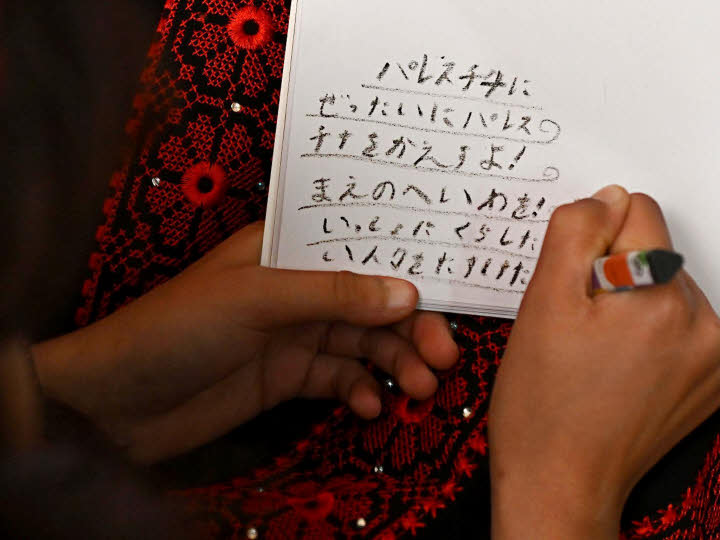 パレスチナに
ぜったいにパレス
チナをかえすよ!
まえのへいわを!
いっしょにくらした
い人々をたすけた